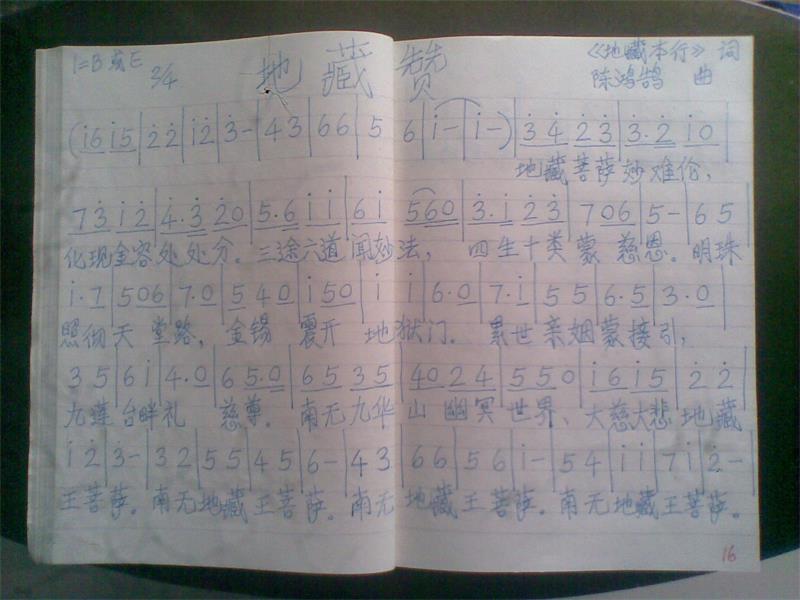 1=B或E 3/4 地藏赞 《地藏本行》词
陈鸿鹄 曲
(i̇6 i̇5|2̇2̇|i̇2̇|3̇-|43|66|5 6|i̇-|i̇-)|3̇4̇ 2̇3̇|3̇.2̇ i̇0
地藏菩萨妙难伦,
73̇ i̇2̇|4̇.3̇ 2̇0|5.6 i̇i̇|6i̇|560|3̇.i̇ 2̇3̇|706|5-|65
化现金容处处分。三途六道闻妙法, 四生十类蒙慈恩。明珠
i̇.7|506|7.0|540|i̇50|i̇ i̇|6.0|7.i̇|55|6.5|3.0
照彻天堂路, 金锡震开地狱门. 累世亲姻蒙接引,
35|6i̇|4.0|65.0|65 35|40 24|550|i̇6 i̇5|2̇ 2̇
九莲台畔礼慈尊。南无九华山幽冥世界、大慈大悲地藏
i̇2̇|3̇-|32|55|45|6-|43|66|56|i̇-|54|i̇i̇|7i̇|2̇-
王菩萨。南无地藏王菩萨。南无地藏王菩萨。南无地藏王菩萨。
16